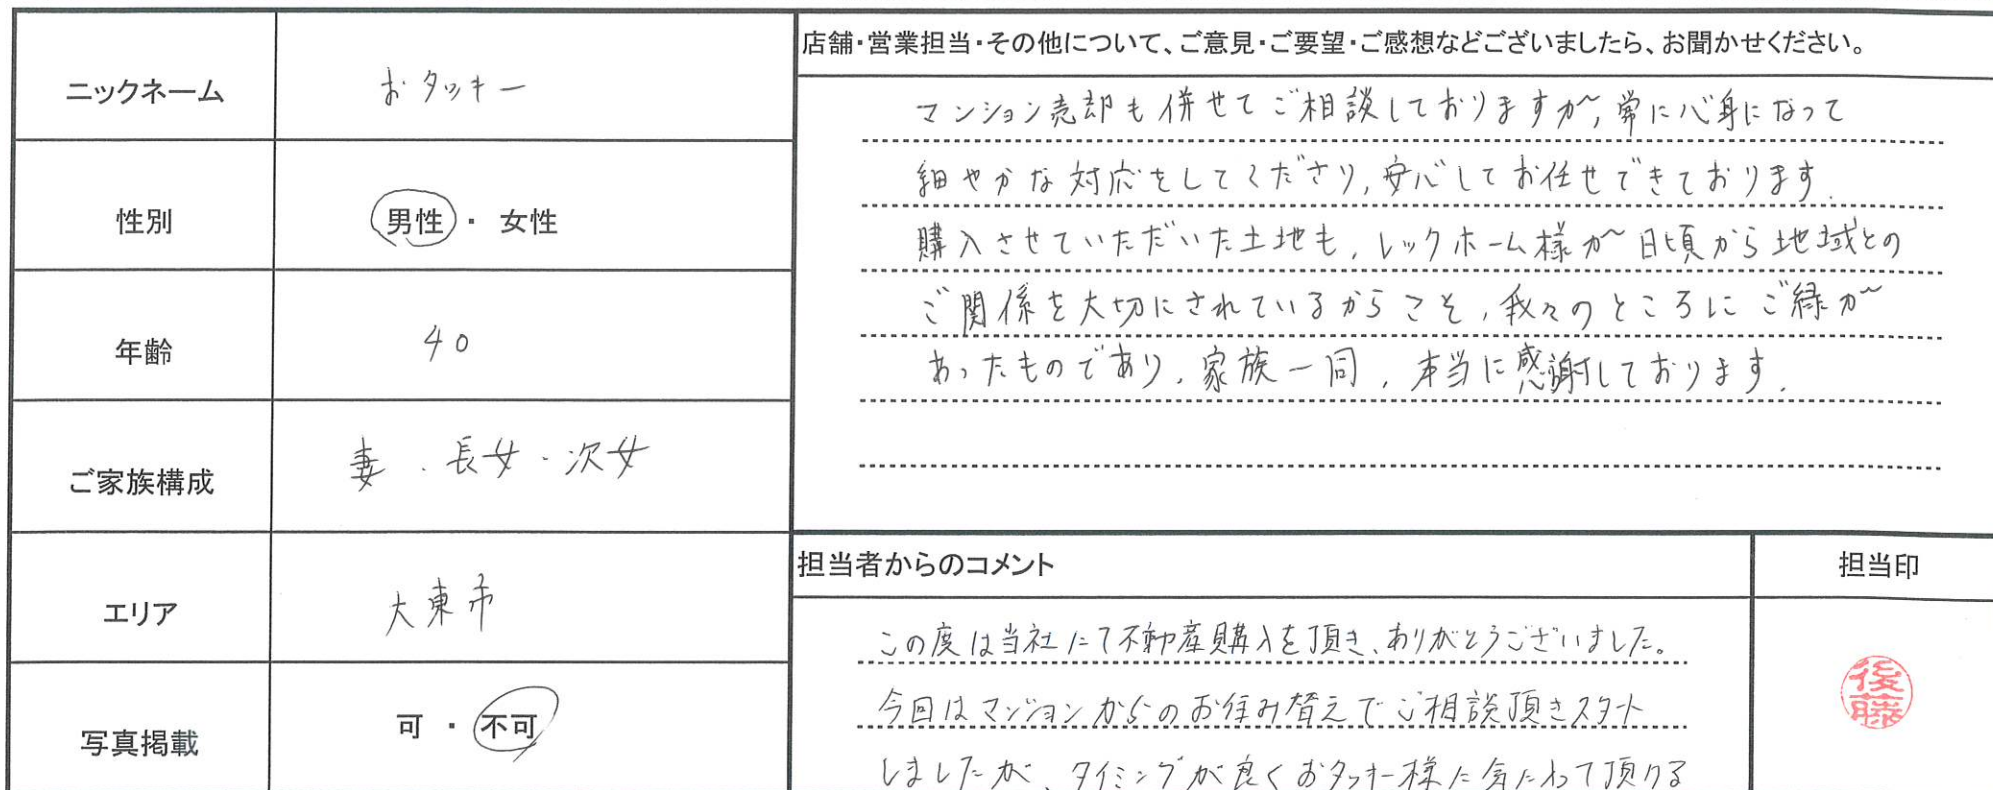 ニックネーム
おタッキー
性別
男性・女性
年齢
40
ご家族構成
妻・長女・次女
エリア
大東市
写真掲載
可・不可
店舗・営業担当・その他について、ご意見・ご要望・ご感想などございましたら、お聞かせください。
マンション売却も併せてご相談しておりますが、常に心身になって
細やかな対応をしてくださり、安心してお任せできております。
購入させていただいた土地も、レックホーム様が日頃から地域との
ご関係を大切にされているからこそ、我々のところにご縁が
あったものであり、家族一同、本当に感謝しております。
担当者からのコメント
担当印
この度は当社にて不動産購入を頂き、ありがとうございました。
今回はマンションからのお住み替えでご相談頂きスタート
しましたが、タイミングが良くおタッキー様に気に入って頂ける
後藤